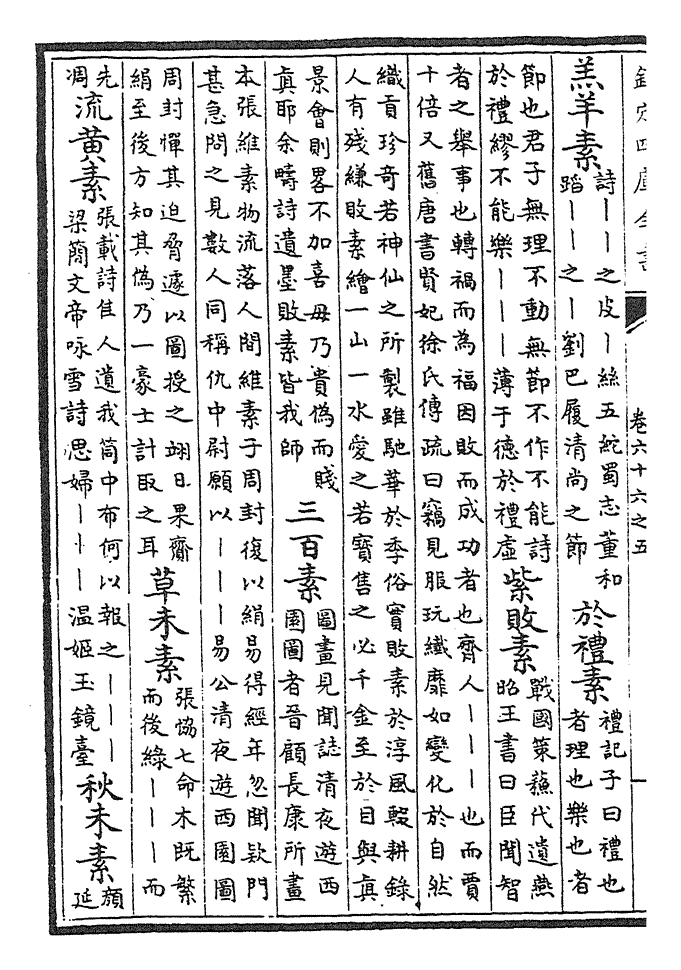 欽定四庫全書
卷六十六之五
一
羔羊素
詩丨丨之皮丨絲五紽蜀志董和
蹈丨丨之丨劉巴履清尚之節
於禮素
禮記子曰禮也
者理也樂也者
節也君子無理不動無節不作不能詩
於禮繆不能樂丨丨丨薄于德於禮虛
紫敗素
戰國策蘇代遺燕
昭王書曰臣聞智
者之舉事也轉禍而為福因敗而成功者也齊人丨丨丨也而賈
十倍又舊唐書賢妃徐氏傳疏曰竊見服玩纖靡如變化於自然
織貢珍奇若神仙之所製雖馳華於季俗實敗素於淳風輟耕錄
人有殘縑敗素繪一山一水愛之若寶售之必千金至於目與真
景會則畧不加喜毋乃貴偽而賤
真耶余疇詩遺墨敗素皆我師
三百素
圖畫見聞誌清夜遊西
園圖者晉顧長康所畫
本張維素物流落人間維素子周封復以絹易得經年忽聞欵門
甚急問之見數人同稱仇中尉願以丨丨丨易公清夜遊西園圖
周封憚其迫脅遽以圖授之翊日果齎
絹至後方知其偽乃一豪士計取之耳
草未素
張協七命木既繁
而後綠丨丨丨而
先
凋
流黄素
張載詩佳人遺我筒中布何以報之丨丨丨
梁簡文帝咏雪詩思婦丨丨丨温姬玉鏡臺
秋未素
顏
延